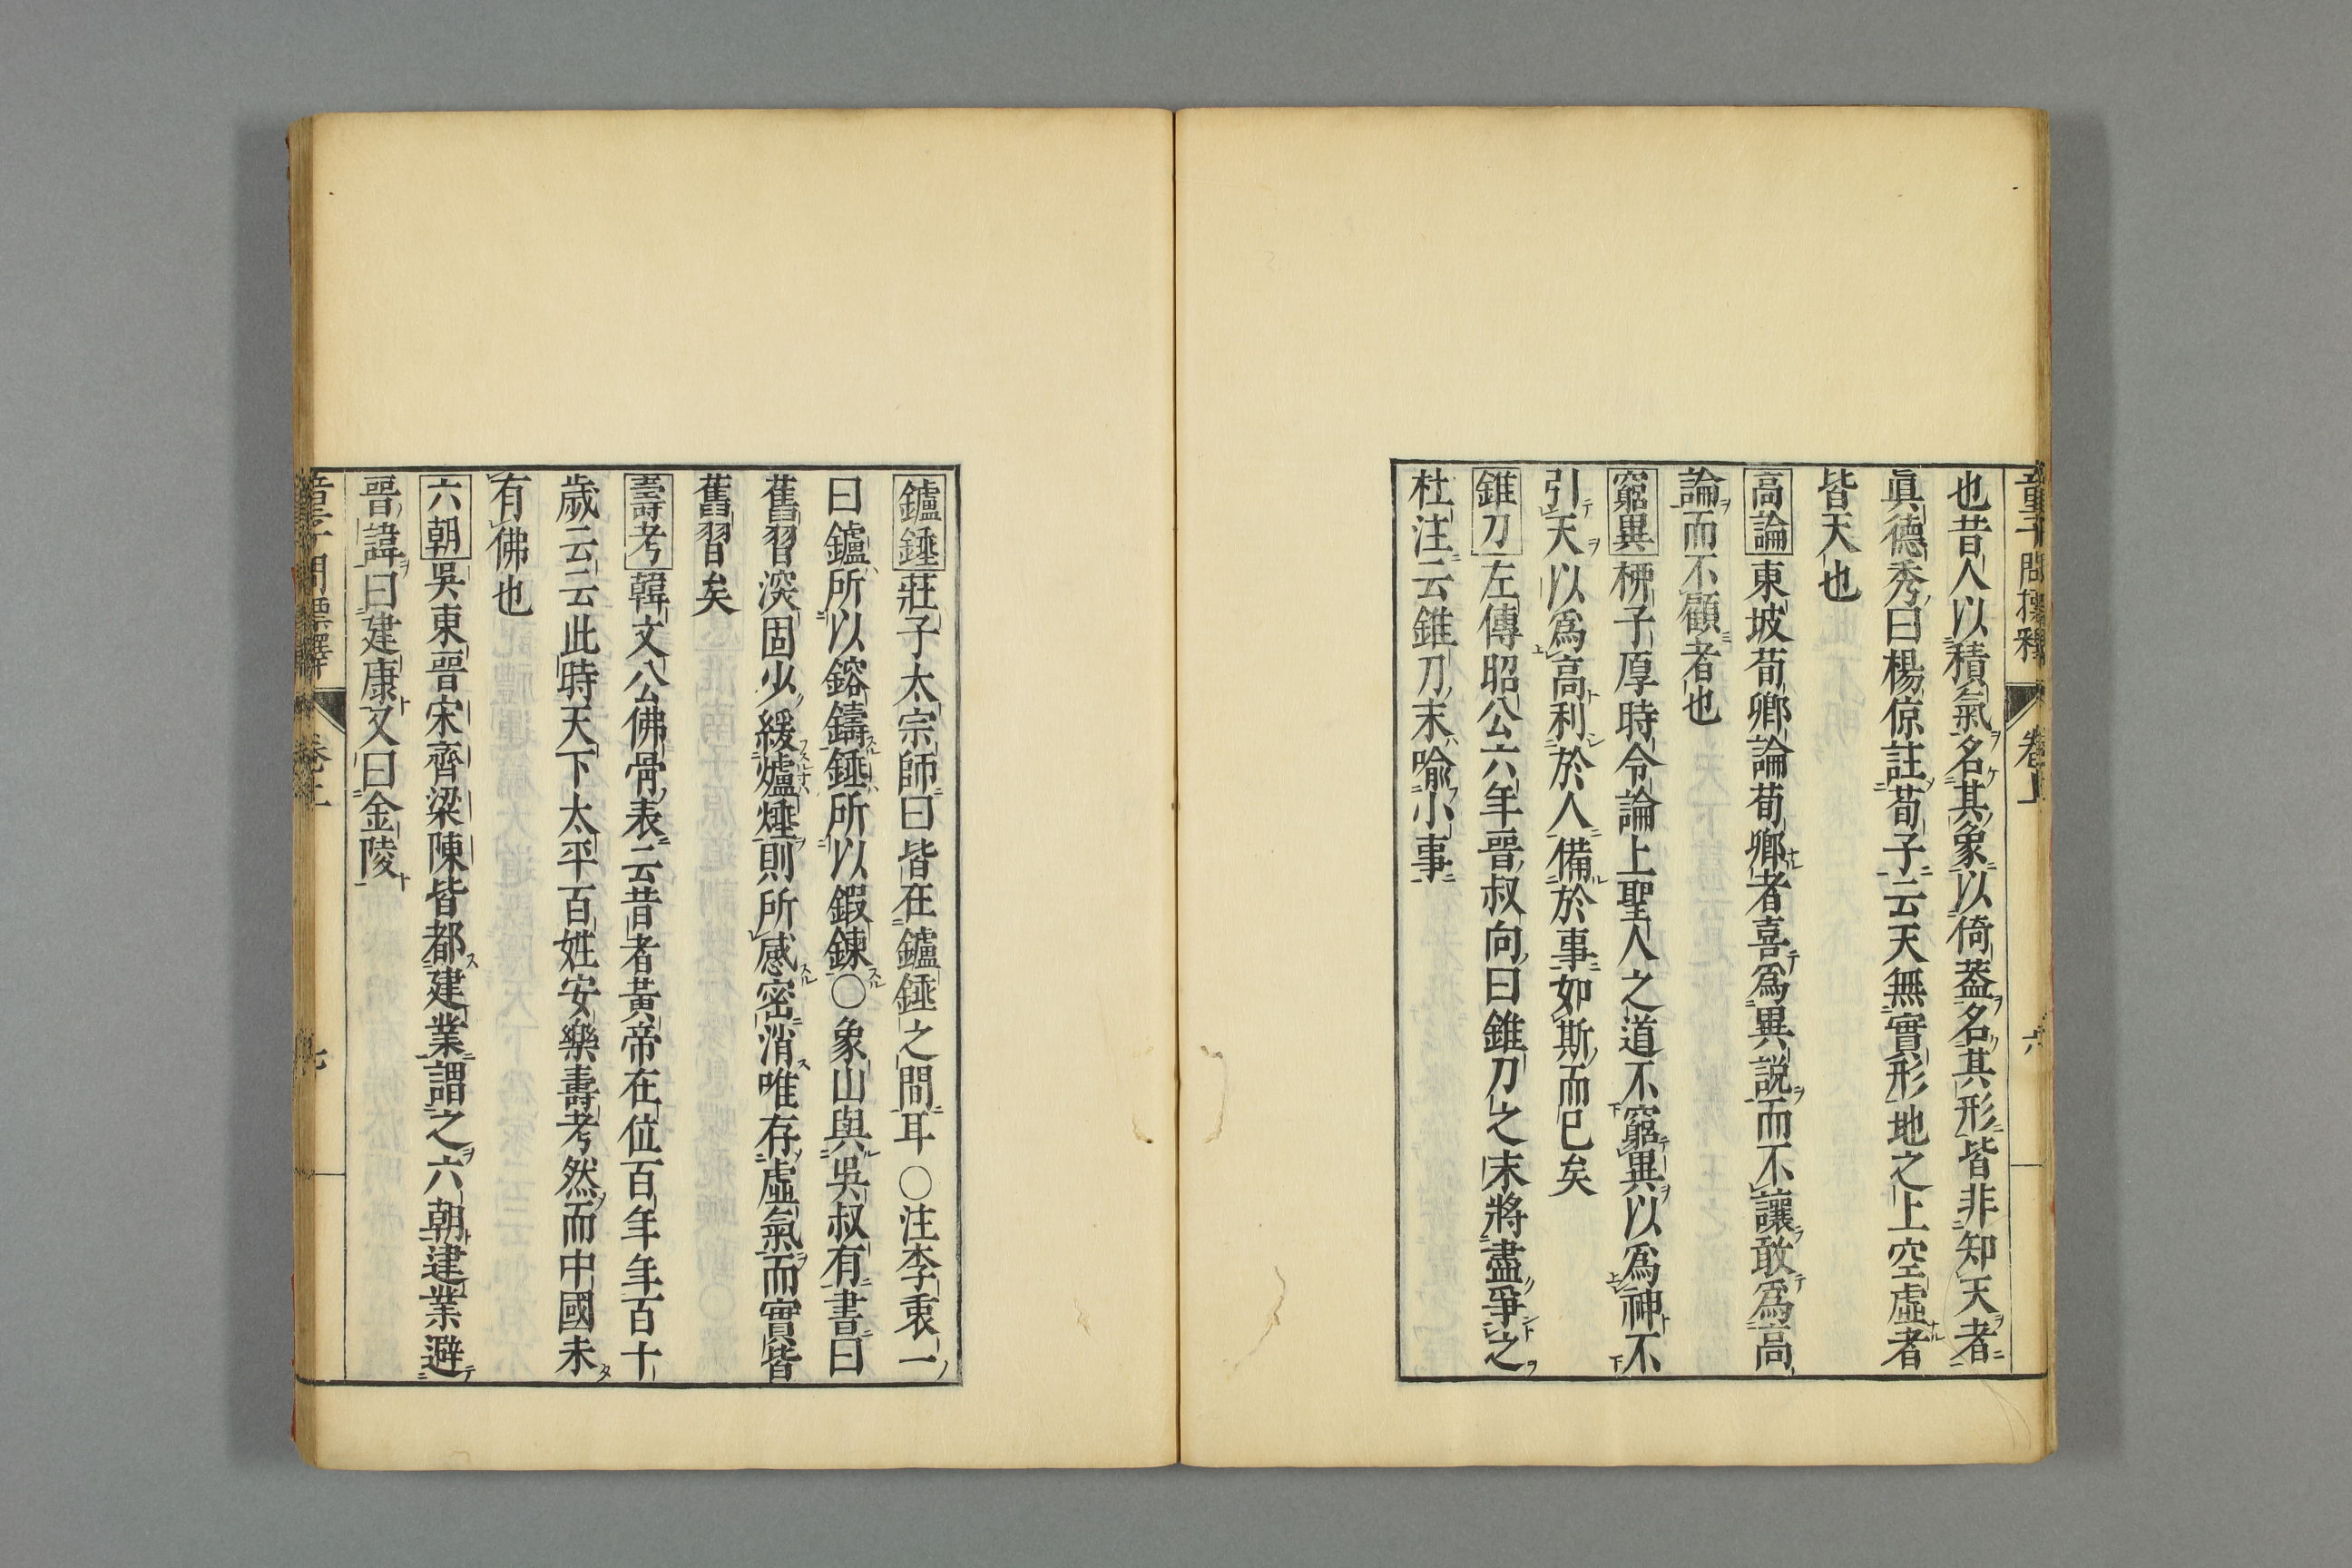 童子問標釋 卷上 六
也昔人以積氣名其象以倚蓋名其形皆非知天者
眞德秀曰楊倞註荀子云天無實形地之上空虛者
皆天也
高論東坡荀卿論荀卿者喜爲異説而不讓敢爲高
論而不顧者也
窮異柳子厚時令論上聖人之道不窮異以爲神不
引天以爲高利於人備於事如斯而已矣
錐刀左傳昭公六年晉叔向曰錐刀之末將盡爭之
杜注云錐刀末喩小事
鑪錘莊子太宗師曰皆在鑪錘之間耳〇注李衷一
曰鑪所以鎔鑄錘所以鍜鍊〇象山與吳叔有書曰
舊習深固少緩爐煙則所感密消唯存虛氣而實皆
舊習矣
壽考韓文公佛骨表云昔者黃帝在位百年年百十
歲云云此時天下太平百姓安樂壽考然而中國未
有佛也
六朝吳東晉宋齊梁陳皆都建業謂之六朝建業避
晉諱曰建康又曰金陵
童子問標釋 卷上 七